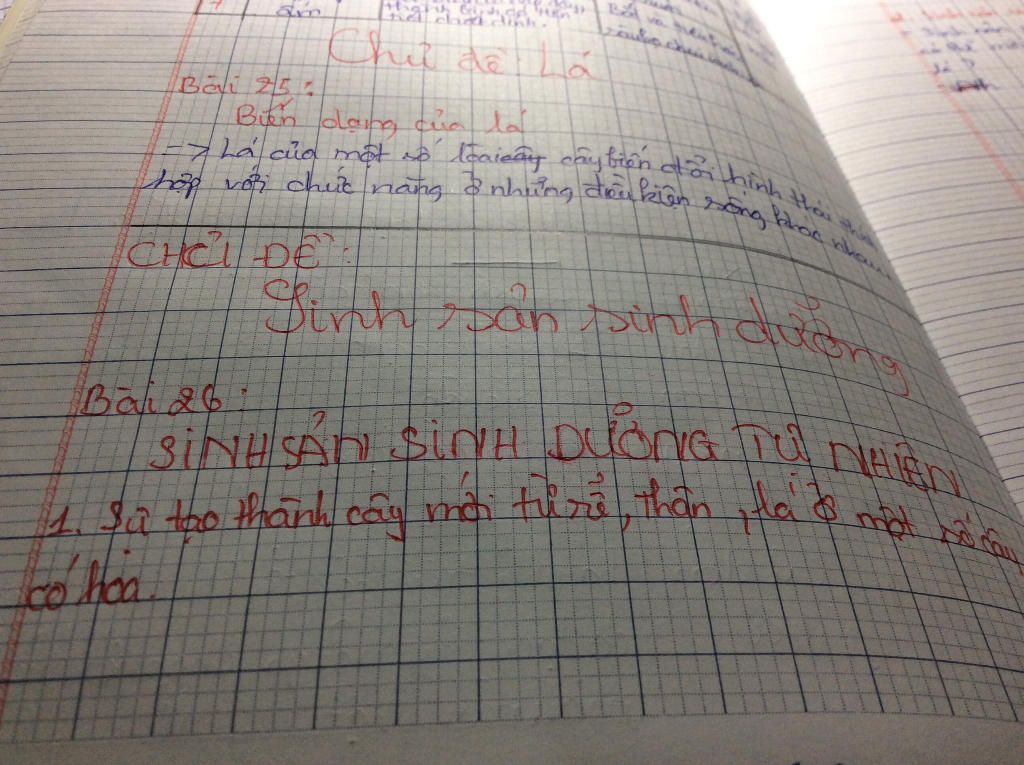 ấm
nơi chất dính.
Chủ đề: Lá
Bài 25:
Biến dạng của lá
--> Lá của một số loài cây biến đổi hình thái thích
hợp với chức năng ở những điều kiện sống khác nhau.
CHỦ ĐỀ:
Sinh sản sinh dưỡng
Bài 26:
SINH SẢN SINH DƯỠNG TỰ NHIÊN
1. Sự tạo thành cây mới từ rễ, thân, lá ở một số cây
có hoa.